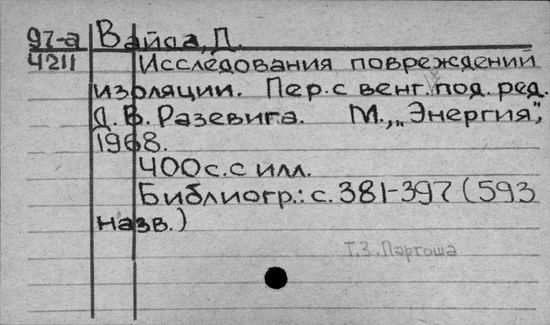 97-а Вайда, Д.
4211 Исследования повреждений
изоляции. Пер. с венг. под. ред.
Д. В. Разевига. М., „Энергия",
1968.
400 с. с илл.
Библиогр.: с. 381-397 (593
назв.)
Т.З.